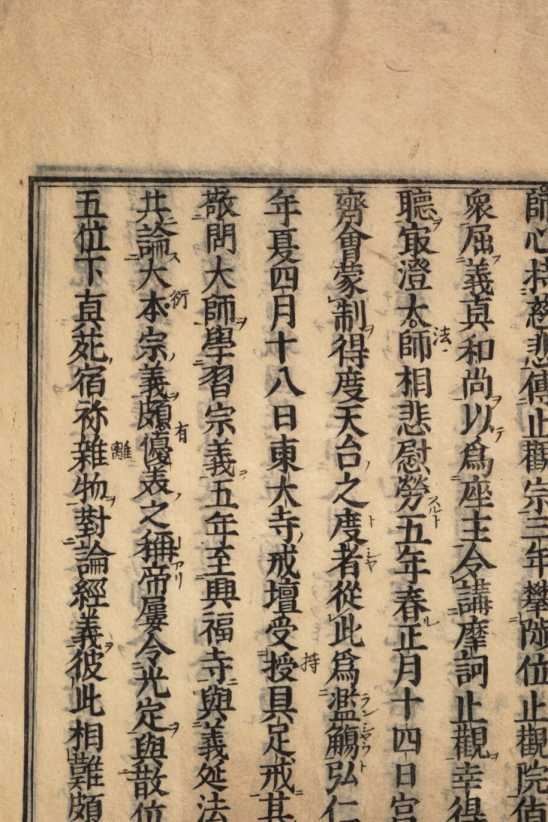 師心持慈悲傳止觀宗三年攀隨位止觀院
衆屈義真和尚以爲座主令講摩訶止觀幸得
聽㝡澄大法師相悲慰勞五年春正月十四日宮
齊會蒙制得度天台之度者從此爲濫觴弘仁
年夏四月十八日東大寺戒壇受授持具足戒其
敬問大師學習宗義五年至興福寺與義延法
共論大本宗義頗優有美之稱帝屢令光定與散位
五位下真苑宿祢雜物離對論經義彼此相難頗